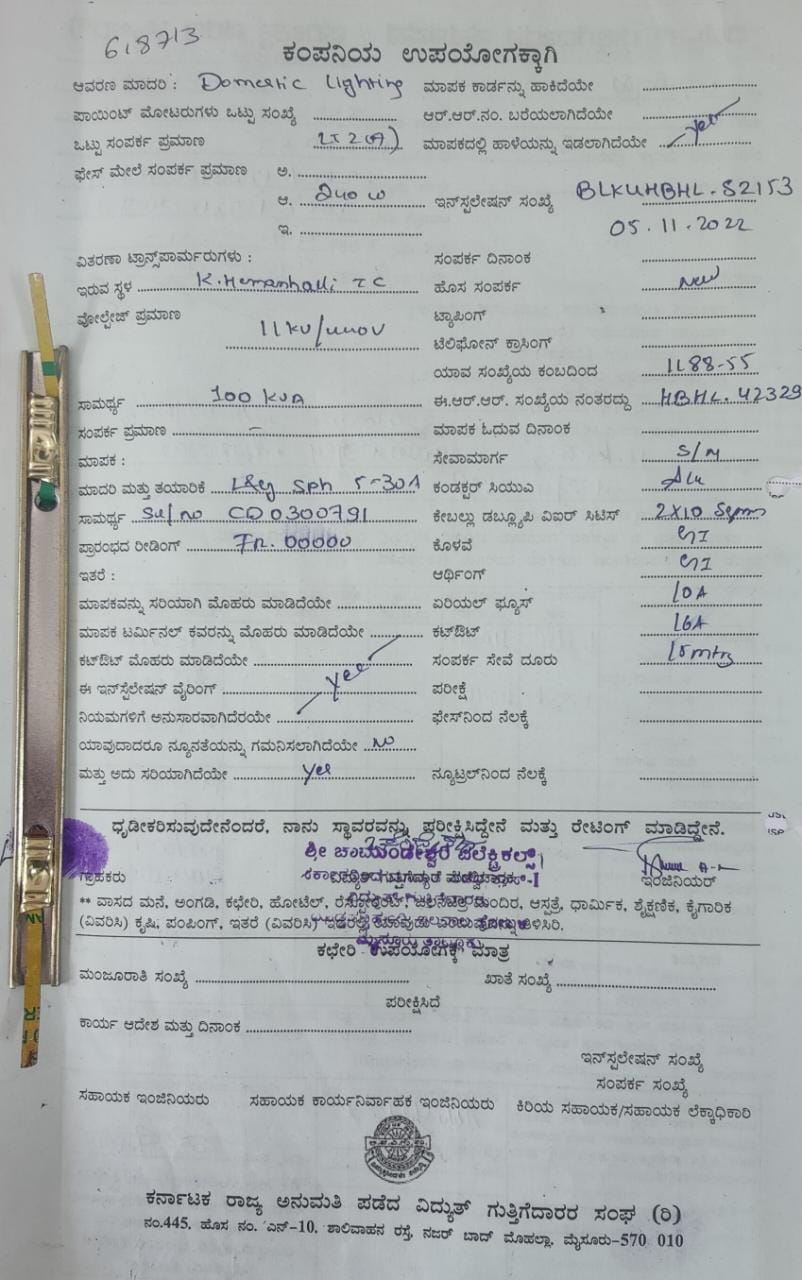 618713
ಕಂಪನಿಯ ಉಪಯೋಗಕ್ಕಾಗಿ
ಆವರಣ ಮಾದರಿ : Domestic Lighting ಮಾಪಕ ಕಾರ್ಡನ್ನು ಹಾಕಿದೆಯೇ
ಪಾಯಿಂಟ್ ಮೋಟರುಗಳು ಒಟ್ಟು ಸಂಖ್ಯೆ ಆರ್.ಆರ್.ನಂ. ಬರೆಯಲಾಗಿದೆಯೇ
ಒಟ್ಟು ಸಂಪರ್ಕ ಪ್ರಮಾಣ ಮಾಪಕದಲ್ಲಿ ಹಾಳೆಯನ್ನು ಇಡಲಾಗಿದೆಯೇ yes
ಫೇಸ್ ಮೇಲೆ ಸಂಪರ್ಕ ಪ್ರಮಾಣ ಅ.
ಆ. 240 W ಇನ್‌ಸ್ಪಲೇಷನ್ ಸಂಖ್ಯೆ BLKUHBHL. 82153
ಇ. 05.11.2022
ವಿತರಣಾ ಟ್ರಾನ್ಸ್‌ಪಾರ್ಮರುಗಳು : ಸಂಪರ್ಕ ದಿನಾಂಕ
ಇರುವ ಸ್ಥಳ K.Hemanhalli TC ಹೊಸ ಸಂಪರ್ಕ New
ವೋಲ್ಟೇಜ್ ಪ್ರಮಾಣ 11KV/440V ಟ್ಯಾಪಿಂಗ್
ಟೆಲಿಫೋನ್ ಕ್ರಾಸಿಂಗ್
ಯಾವ ಸಂಖ್ಯೆಯ ಕಂಬದಿಂದ 1L88-55
ಸಾಮರ್ಥ್ಯ 100 KVA ಈ.ಆರ್.ಆರ್. ಸಂಖ್ಯೆಯ ನಂತರದ್ದು HBHL. 42329
ಸಂಪರ್ಕ ಪ್ರಮಾಣ - ಮಾಪಕ ಓದುವ ದಿನಾಂಕ
ಮಾಪಕ : ಸೇವಾಮಾರ್ಗ S/M
ಮಾದರಿ ಮತ್ತು ತಯಾರಿಕೆ L&G Sph 5-30A ಕಂಡಕ್ಟರ್ ಸಿಯುಎ Alu
ಸಾಮರ್ಥ್ಯ Sl/no CD0300791 ಕೇಬಲ್ಲು ಡಬ್ಲ್ಯೂಪಿ ವಿಐಆರ್ ಸಿಟಿಸ್ 2X10 Sqmm
ಪ್ರಾರಂಭದ ರೀಡಿಂಗ್ FR. 00000 ಕೊಳವೆ GI
ಇತರೆ : ಆರ್ಥಿಂಗ್ GI
ಮಾಪಕವನ್ನು ಸರಿಯಾಗಿ ಮೊಹರು ಮಾಡಿದೆಯೇ ಏರಿಯಲ್ ಫ್ಯೂಸ್ 10A
ಮಾಪಕ ಟರ್ಮಿನಲ್ ಕವರನ್ನು ಮೊಹರು ಮಾಡಿದೆಯೇ ಕಟ್‌ಔಟ್ 16A
ಕಟ್‌ಔಟ್ ಮೊಹರು ಮಾಡಿದೆಯೇ ಸಂಪರ್ಕ ಸೇವೆ ದೂರು 15mtrs
ಈ ಇನ್‌ಸ್ಪೆಲೇಷನ್ ವೈರಿಂಗ್ yes ಪರೀಕ್ಷೆ
ನಿಯಮಗಳಿಗೆ ಅನುಸಾರವಾಗಿದೆರಯೇ ಫೇಸ್‌ನಿಂದ ನೆಲಕ್ಕೆ
ಯಾವುದಾದರೂ ನ್ಯೂನತೆಯನ್ನು ಗಮನಿಸಲಾಗಿದೆಯೇ No
ಮತ್ತು ಅದು ಸರಿಯಾಗಿದೆಯೇ yes ನ್ಯೂಟ್ರಲ್‌ನಿಂದ ನೆಲಕ್ಕೆ
ಧೃಡೀಕರಿಸುವುದೇನೆಂದರೆ, ನಾನು ಸ್ಥಾವರವನ್ನು ಪರೀಕ್ಷಿಸಿದ್ದೇನೆ ಮತ್ತು ರೇಟಿಂಗ್ ಮಾಡಿದ್ದೇನೆ.
ಶ್ರೀ ಚಾಮುಂಡೇಶ್ವರಿ ಎಲೆಕ್ಟ್ರಿಕಲ್ಸ್
ಗ್ರಾಹಕರು ಇಂಜಿನಿಯರ್
** ವಾಸದ ಮನೆ, ಅಂಗಡಿ, ಕಛೇರಿ, ಹೋಟೆಲ್, ಮಂದಿರ, ಆಸ್ಪತ್ರೆ, ಧಾರ್ಮಿಕ, ಶೈಕ್ಷಣಿಕ, ಕೈಗಾರಿಕ
(ವಿವರಿಸಿ) ಕೃಷಿ, ಪಂಪಿಂಗ್, ಇತರೆ (ವಿವರಿಸಿ)
ಕಛೇರಿ ಉಪಯೋಗಕ್ಕೆ ಮಾತ್ರ
ಮಂಜೂರಾತಿ ಸಂಖ್ಯೆ ಖಾತೆ ಸಂಖ್ಯೆ
ಪರೀಕ್ಷಿಸಿದೆ
ಕಾರ್ಯ ಆದೇಶ ಮತ್ತು ದಿನಾಂಕ
ಇನ್‌ಸ್ಪಲೇಷನ್ ಸಂಖ್ಯೆ
ಸಂಪರ್ಕ ಸಂಖ್ಯೆ
ಸಹಾಯಕ ಇಂಜಿನಿಯರು ಸಹಾಯಕ ಕಾರ್ಯನಿರ್ವಾಹಕ ಇಂಜಿನಿಯರು ಕಿರಿಯ ಸಹಾಯಕ/ಸಹಾಯಕ ಲೆಕ್ಕಾಧಿಕಾರಿ
ಕರ್ನಾಟಕ ರಾಜ್ಯ ಅನುಮತಿ ಪಡೆದ ವಿದ್ಯುತ್ ಗುತ್ತಿಗೆದಾರರ ಸಂಘ (ರಿ)
ನಂ.445, ಹೊಸ ನಂ. ಎನ್-10, ಶಾಲಿವಾಹನ ರಸ್ತೆ, ನಜರ್ ಬಾದ್ ಮೊಹಲ್ಲಾ, ಮೈಸೂರು-570 010